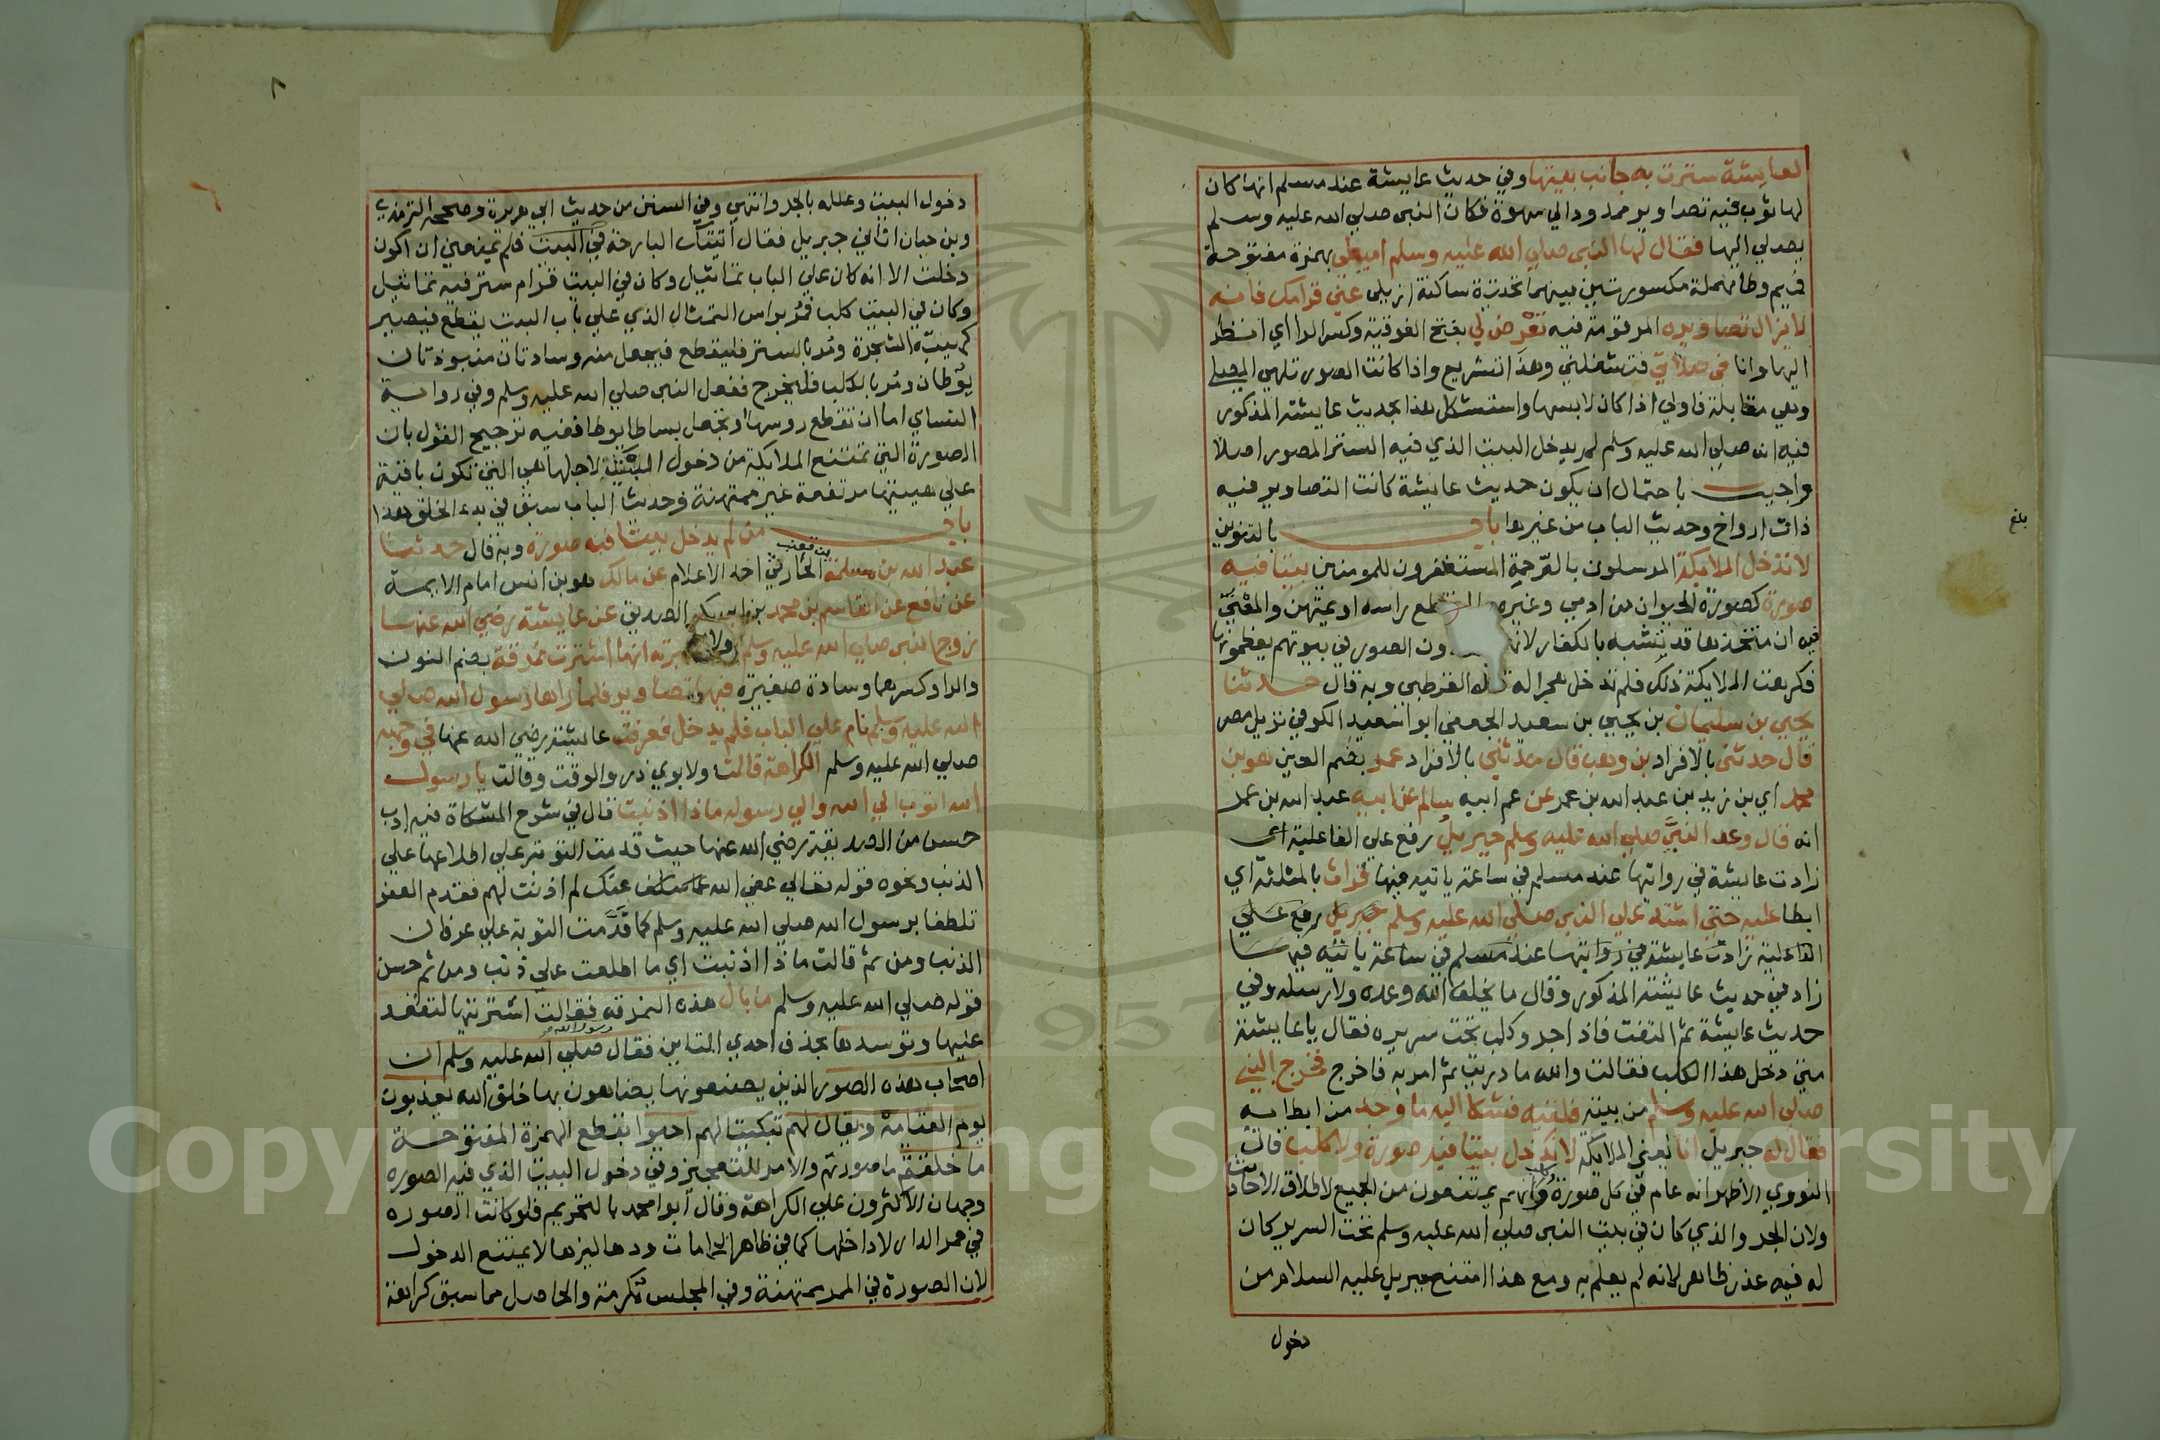 لعايشة سترت به جانب بيتها وفي حديث عايشة عند مسلم انها كان
لها ثوب فيه تصاوير ممدود الي سهوة فكان النبي صلي الله عليه وسلم
يصلي اليها فقال لها النبي صلي الله عليه وسلم اميطي بهمزة مفتوحة
فميم وطا مهملة مكسورتين بينهما تحتية ساكنة ازيلي عني قرامك فانه
لا تزال تصاويره المرقومة فيه تعرض لي بفتح الفوقية وكسر الرا اي انظر
اليها وانا في صلاتي فتشغلني وهذا تشريع واذا كانت الصور تلهي المصلي
وهي مقابلة فاولي اذا كان لابسها واستشكل هذا بحديث عايشة المذكور
فيه انه صلي الله عليه وسلم لم يدخل البيت الذي فيه الستر المصور اصلا
واجيب باحتمال ان يكون حديث عايشة كانت التصاوير فيه
ذات ارواح وحديث الباب من غيرها باب بالتنوين
لا تدخل الملايكة المرسلون بالرحمة المستغفرون للمومنين بيتا فيه
صورة كصورة الحيوان من ادمي وغيره راسه او يمتهن والمعني
فيه ان متخذها قد تشبه بالكفار لانه ون الصور في بيوتهم يعظمونها
فكرهت الملايكة ذلك فلم تدخل هجرا له قاله القرطبي وبه قال حدثنا
يحيي بن سليمان بن يحيي بن سعيد الجعفي ابو سعيد الكوفي نزيل مصر
قال حدثني بالافراد بن وهب قال حدثني بالافراد عمر بضم العين هو بن
محمد اي بن زيد بن عبد الله بن عمر عن عم ابيه سالم عن ابيه عبد الله بن عمر
انه قال وعد النبي صلي الله عليه وسلم جبريل رفع علي الفاعلية اي
زادت عايشة في روايتها عند مسلم في ساعة ياتيه فيها فراث بالمثلثة اي
ابطا عليه حتي اشتد علي النبي صلي الله عليه وسلم جبريل رفع علي
الفاعلية زادت عايشة في روايتها عند مسلم في ساعة ياتيه فيها
زاد في حديث عايشة المذكور وقال ما يخلف الله وعده ولا رسله وفي
حديث عايشة ثم التفت فاذا جرو كلب تحت سريره فقال يا عايشة
متي دخل هذا الكلب فقالت والله ما دريت ثم امر به فاخرج فخرج النبي
صلي الله عليه وسلم من بيته فلقيه فشكا اليه ما وجد من ابطايه
فقال له جبريل انا يعني الملايكة لا ندخل بيتا فيه صورة ولا كلب قال
النووي الاظهر انه عام في كل صورة وانهم يمتنعون من الجميع لاطلاق الاحاديث
ولان الجرو الذي كان في بيت النبي صلي الله عليه وسلم تحت السرير كان
له فيه عذر ظاهر لانه لم يعلم به ومع هذا امتنع جبريل عليه السلام من
دخول
بلغ
٨
دخول البيت وعلله بالجرو انتهي وفي السنن من حديث ابي هريرة وصححه الترمذي
وبن حبان اتاني جبريل فقال اتيتك البارحة في البيت فلم يمنعني ان اكون
دخلت الا انه كان علي الباب تماثيل وكان في البيت قرام ستر فيه تماثيل
وكان في البيت كلب فمر براس التمثال الذي علي باب البيت يقطع فيصير
كهيية الشجرة ومر بالستر فليقطع فيجعل منه وسادتان منبوذتان
يوطان ومر بالكلب فليخرج ففعل النبي صلي الله عليه وسلم وفي رواية
النساي اما ان تقطع روسها او تجعل بساطا يوطا ففيه ترجيح القول بان
الصورة التي تمتنع الملايكة من دخول البيت لاجلها هي التي تكون باقية
علي هييتها مرتفعة غير ممتهنة وحديث الباب سبق في بدء الخلق هذا
باب من لم يدخل بيتا فيه صورة وبه قال حدثنا
عبد الله بن مسلمة بن قعنب الحارثي احد الاعلام عن مالك هو بن انس امام الايمة
عن نافع عن القاسم بن محمد بن ابي بكر الصديق عن عايشة رضي الله عنها
زوج النبي صلي الله عليه وسلم انها اشترت نمرقة بضم النون
والرا وكسرهما وسادة صغيرة فيها تصاوير فلما راها رسول الله صلي
الله عليه وسلم قام علي الباب فلم يدخل فعرفت عايشة رضي الله عنها في وجهه
صلي الله عليه وسلم الكراهة قالت ولابوي ذر والوقت وقالت يا رسول
الله اتوب الي الله والي رسوله ماذا اذنبت قال في شرح المشكاة فيه ادب
حسن من الصديقة رضي الله عنها حيث قدمت التوبة علي اطلاعها علي
الذنب ونحوه قوله تعالي عفي الله عنك لم اذنت لهم فقدم العفو
تلطفا برسول الله صلي الله عليه وسلم كما قدمت التوبة علي عرفان
الذنب ومن ثم قالت ماذا اذنبت اي ما اطلعت علي ذنب ومن ثم حسن
قوله صلي الله عليه وسلم ما بال هذه النمرقة فقالت اشتريتها لتقعد
عليها وتوسدها بحذف احدي التاين فقال رسول الله صلي الله عليه وسلم ان
اصحاب هذه الصور الذين يصنعونها يضاهون بها خلق الله يعذبون
يوم القيامة ويقال لهم تبكيتا لهم احيوا بقطع الهمزة المفتوحة
ما خلقتم ما صورتم والامر للتعجيز وفي دخول البيت الذي فيه الصورة
وجهان الاكثرون علي الكراهة وقال ابو محمد بالتحريم فلو كانت الصورة
في ممر الدار لا داخلها كما في ظاهر الحمامات ودهاليزها لا يمتنع الدخول
لان الصورة في الممر ممتهنة وفي المجلس مكرمة والحاصل مما سبق كراهة
Copyright © King Saud University
1957